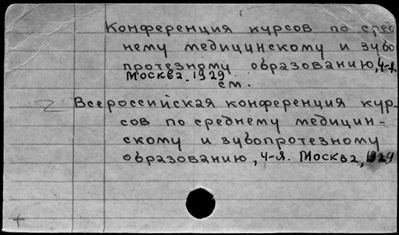 Конференция курсов по сред
нему медицинскому и зубо
протезному образованию, 4-я.
Москва. 1929
см.
Всероссийская конференция кур-
сов по среднему медицин-
скому и зубопротезному
образованию, 4-я. Москва,